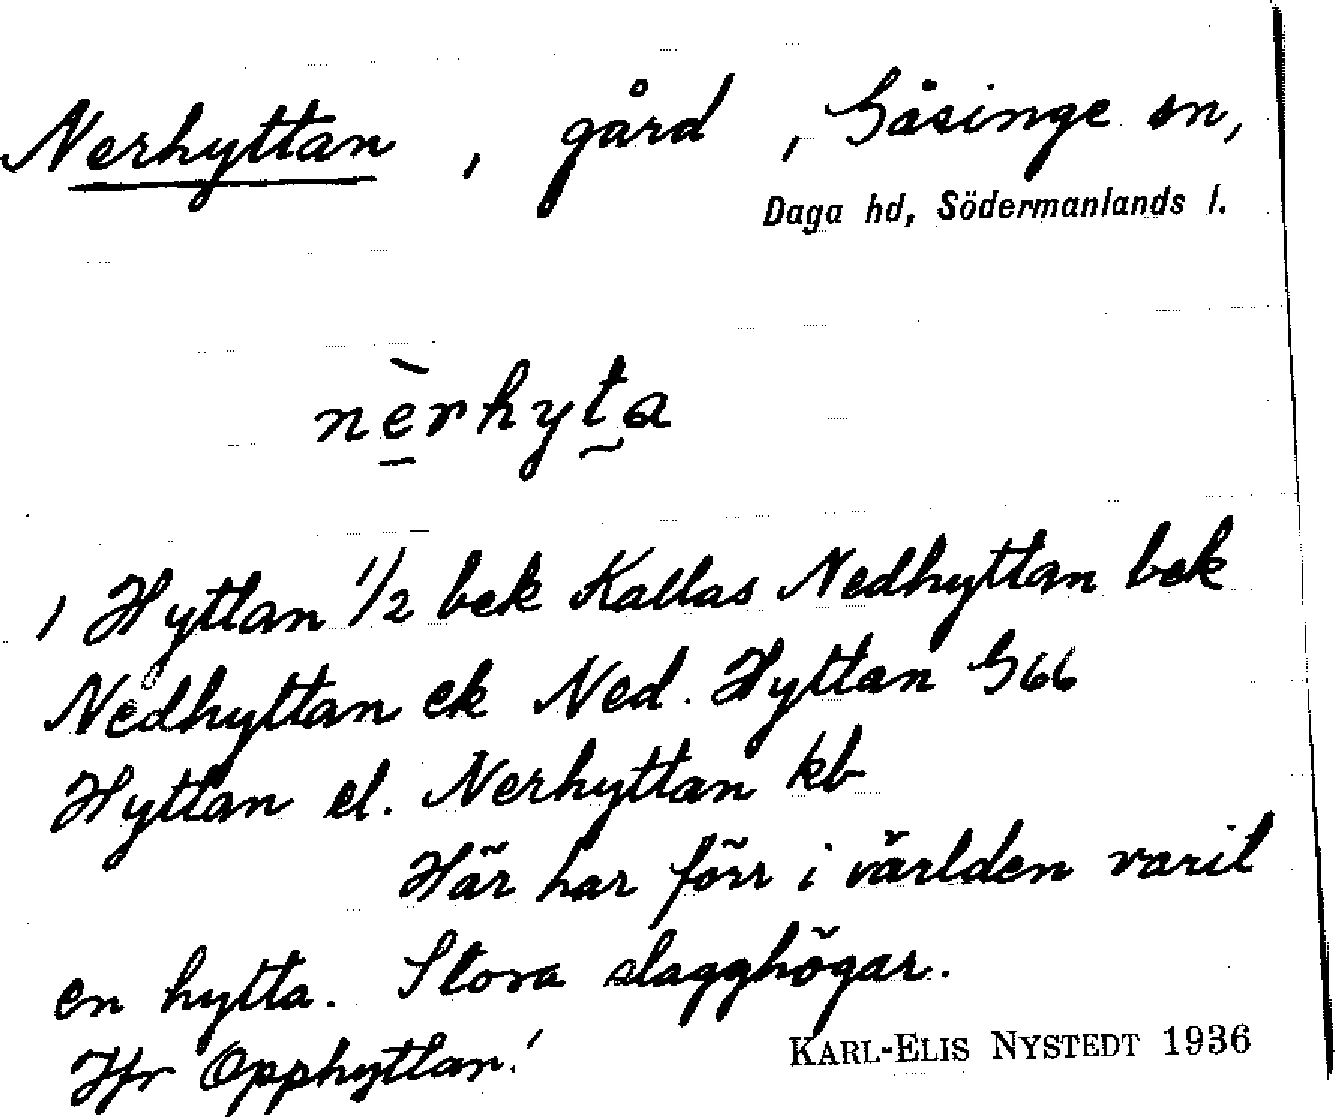 Nerhyttan, gård, Gåsinge sn,
Daga hd, Södermanlands l.
nèrhyta
1 Hyttan 1/2 bek Kallas Nedhyttan bek
Nedhyttan ek Ned. Hyttan G66
Hyttan el. Nerhyttan kb
Här har förr i världen varit
en hytta. Stora slagghögar.
Jfr Opphyttan!
KARL-ELIS NYSTEDT 1936